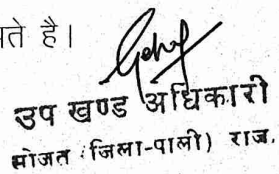 ते है।
उप खण्ड अधिकारी
सोजत (जिला-पाली) राज.